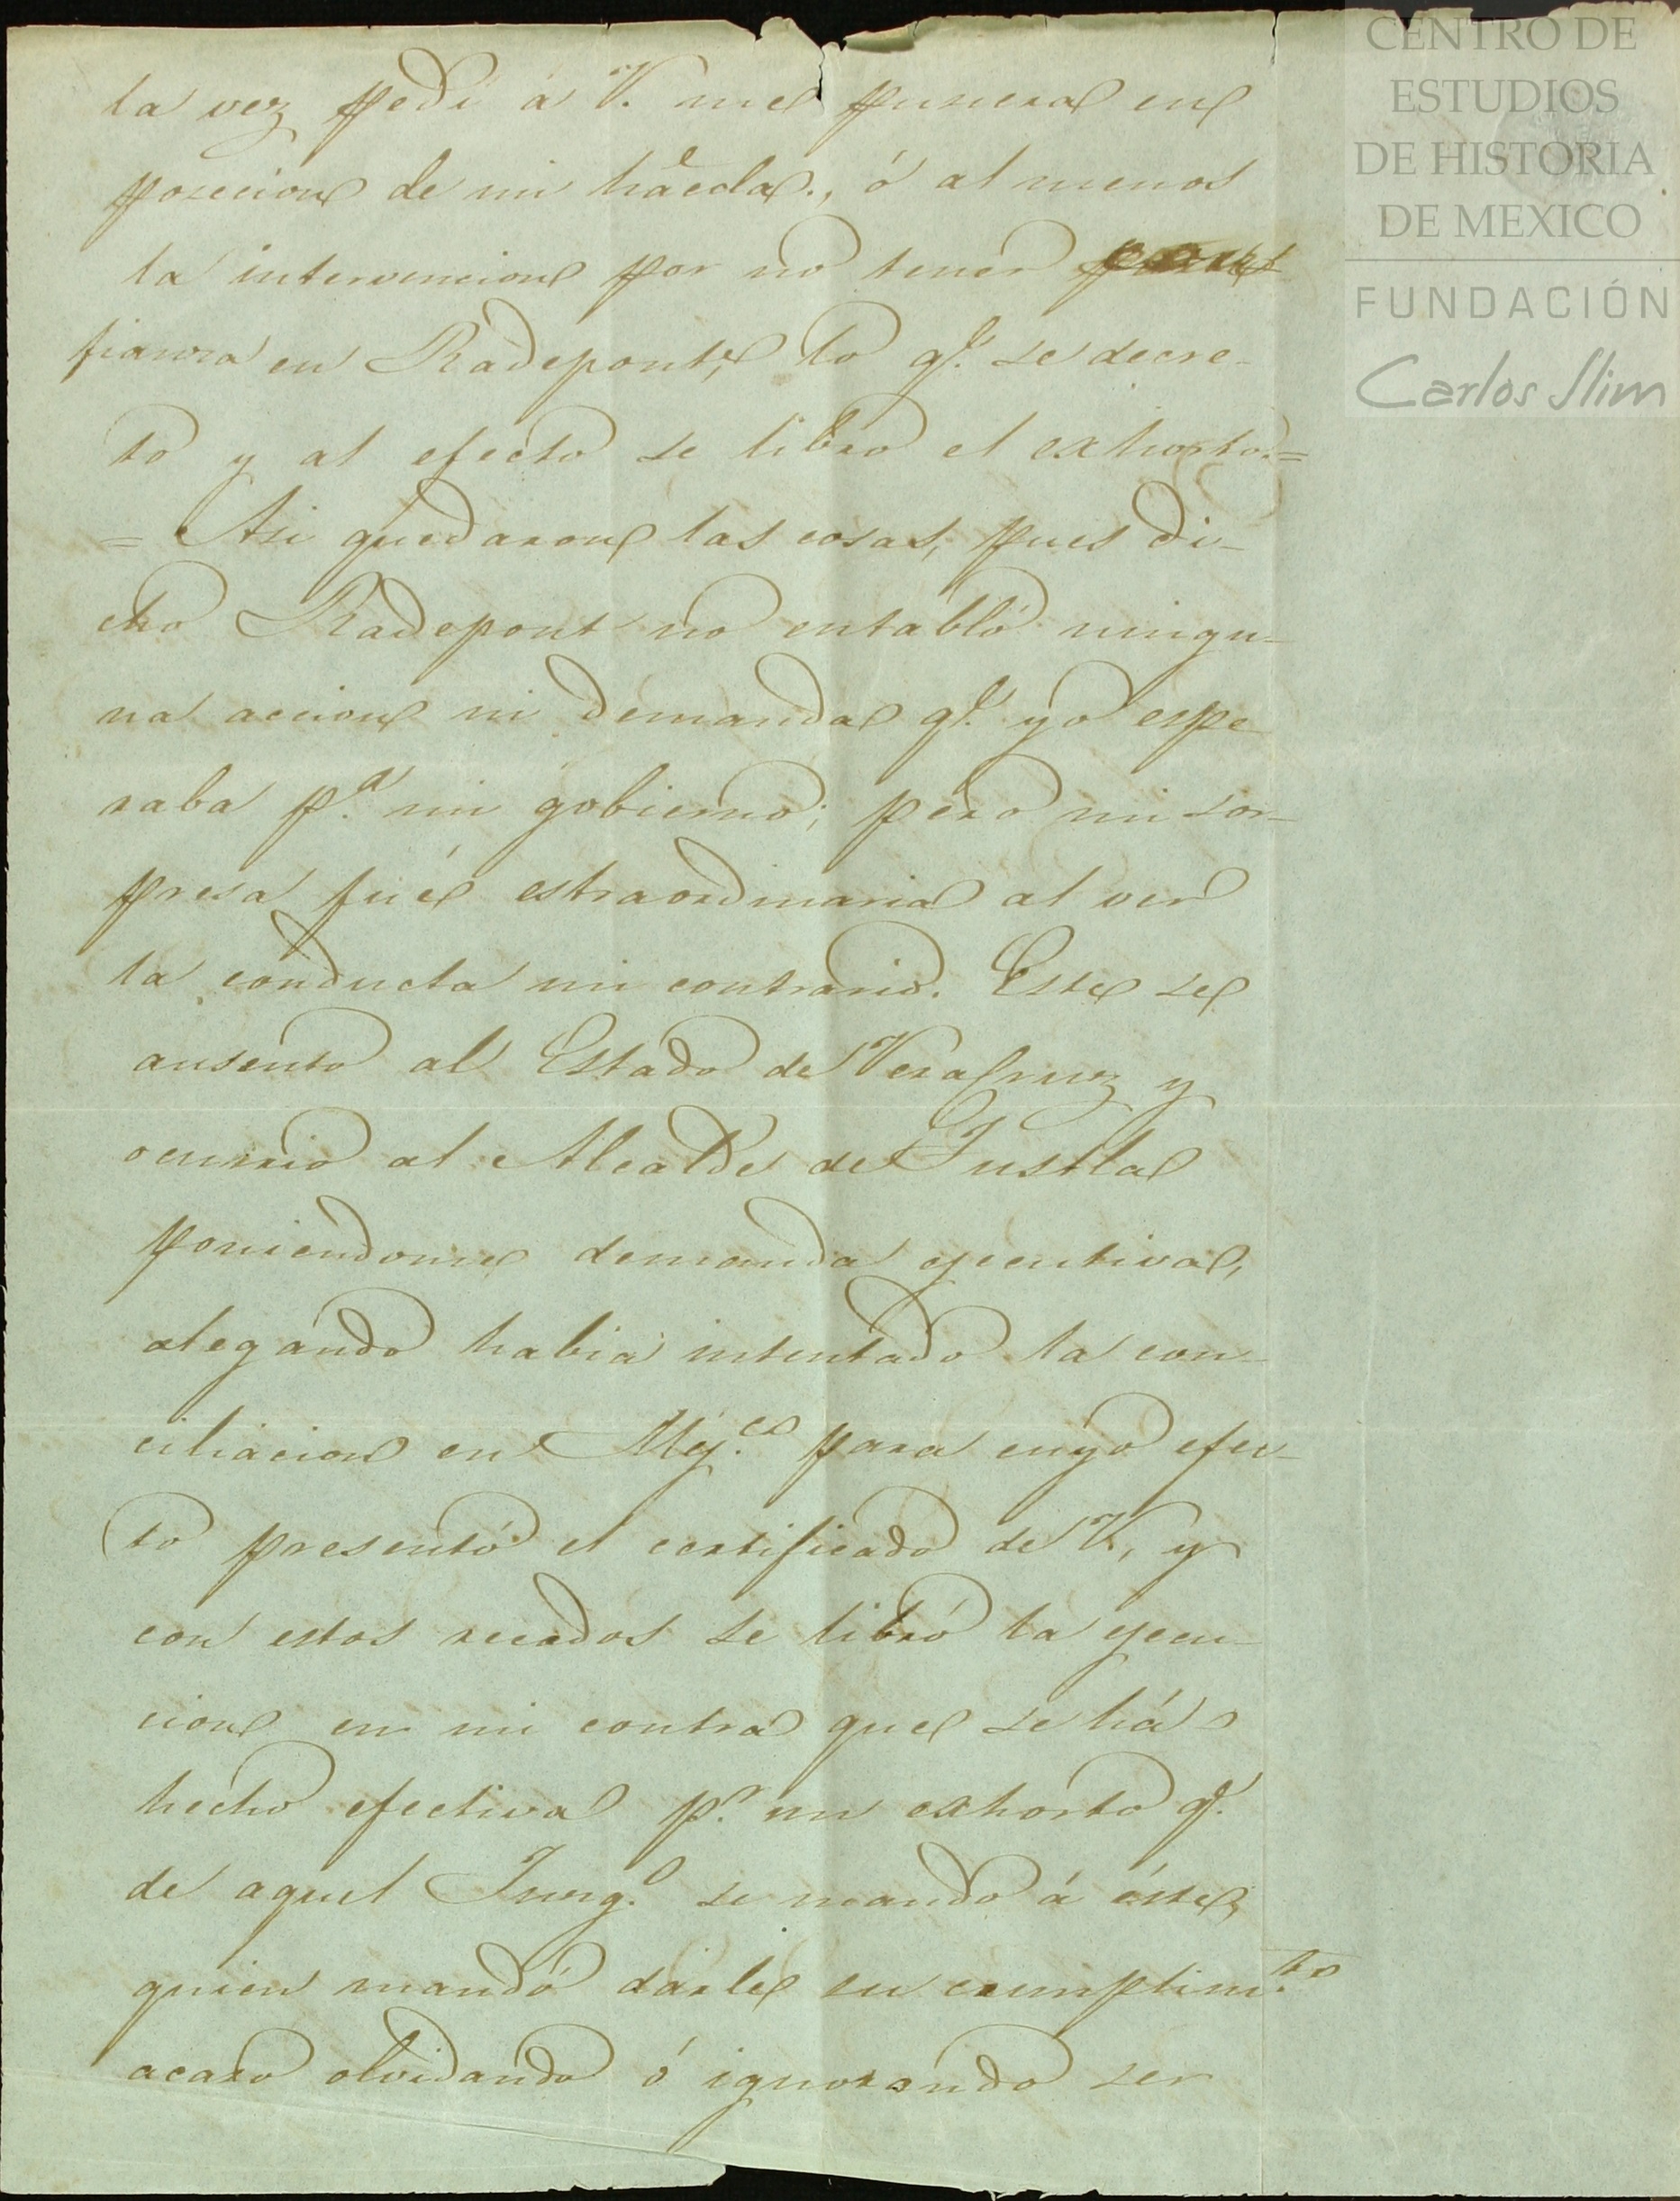 la vez pedí á V. me pusiera en
posecion de mi haĉeda., ó al menos
la intervencion por no tener
fianza en Radepont, lo q.e se decre-
to y al efecto se libro el exhorto.=
= Asi quedaron las cosas, pues di-
cho Radepont no entabló ningu-
na accion ni demanda q.e yo espe
raba p.a mi gobierno; pero mi sor-
presa fué estraordinaria al ver
la conducta mi contrario. Este se
ausento al Estado de VeraCruz y
ocurrio al Alcalde de Tustla
poniendome demanda ejecutiva,
alegando habia intentado la con-
ciliacion en Mej.co para cuyo efec-
to presentó el certificado de V, y
con estos recados se libró la ejecu-
cion en mi contra que se há
hecho efectiva p.r un exhorto q.e
de aquel Juzg.o se mando á éste,
quien mandó darle su cumplim.to
acaso olvidando ó ignorando ser
CENTRO DE
ESTUDIOS
DE HISTORIA
DE MEXICO
FUNDACIÓN
Carlos Slim